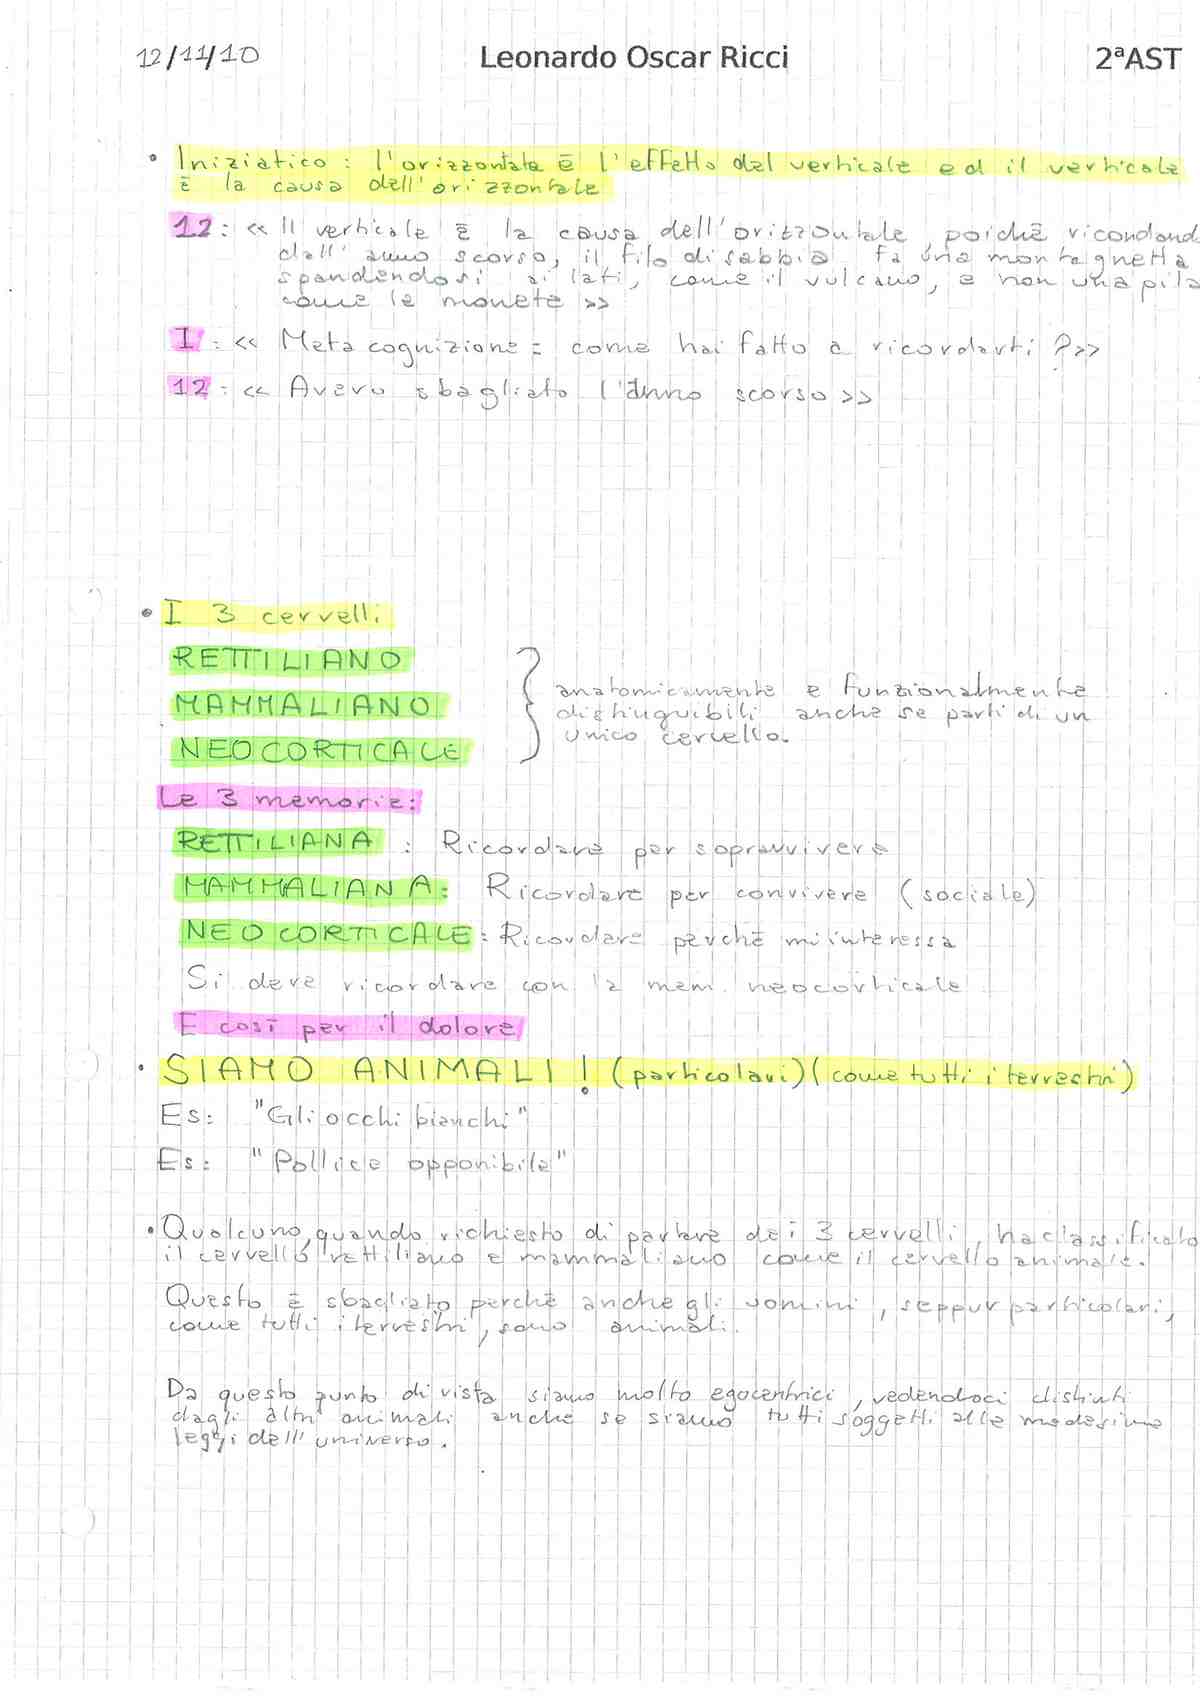 12/11/10 Leonardo Oscar Ricci 2ªAST
• Iniziatico: l'orizzontale è l'effetto del verticale ed il verticale
è la causa dell'orizzontale
12: << Il verticale è la causa dell'orizzontale, poichè ricordand
dall'anno scorso, il filo di sabbia fa una montagnetta
spandendosi ai lati, come il vulcano, e non una pila
come le monete >>
I: << Metacognizione: come hai fatto a ricordarti?>>
12: << Avevo sbagliato l'anno scorso >>
• I 3 cervelli
RETTILIANO
MAMMALIANO
NEOCORTICALE
} anatomicamente e funzionalmente
distinguibili anche se parti di un
unico cervello.
Le 3 memorie:
RETTILIANA : Ricordare per sopravvivere
MAMMALIANA: Ricordare per convivere (sociale)
NEOCORTICALE: Ricordare perchè mi interessa
Si deve ricordare con la mem. neocorticale
E così per il dolore
• SIAMO ANIMALI! (particolari) (come tutti i terrestri)
Es: "Gli occhi bianchi"
Es: "Pollice opponibile"
• Qualcuno, quando richiesto di parlare dei 3 cervelli, ha classificato
il cervello rettiliano e mammaliano come il cervello animale.
Questo è sbagliato perchè anche gli uomini, seppur particolari,
come tutti i terrestri, sono animali.
Da questo punto di vista siamo molto egocentrici, vedendoci distinti
dagli altri animali anche se siamo tutti soggetti alle medesime
leggi dell'universo.